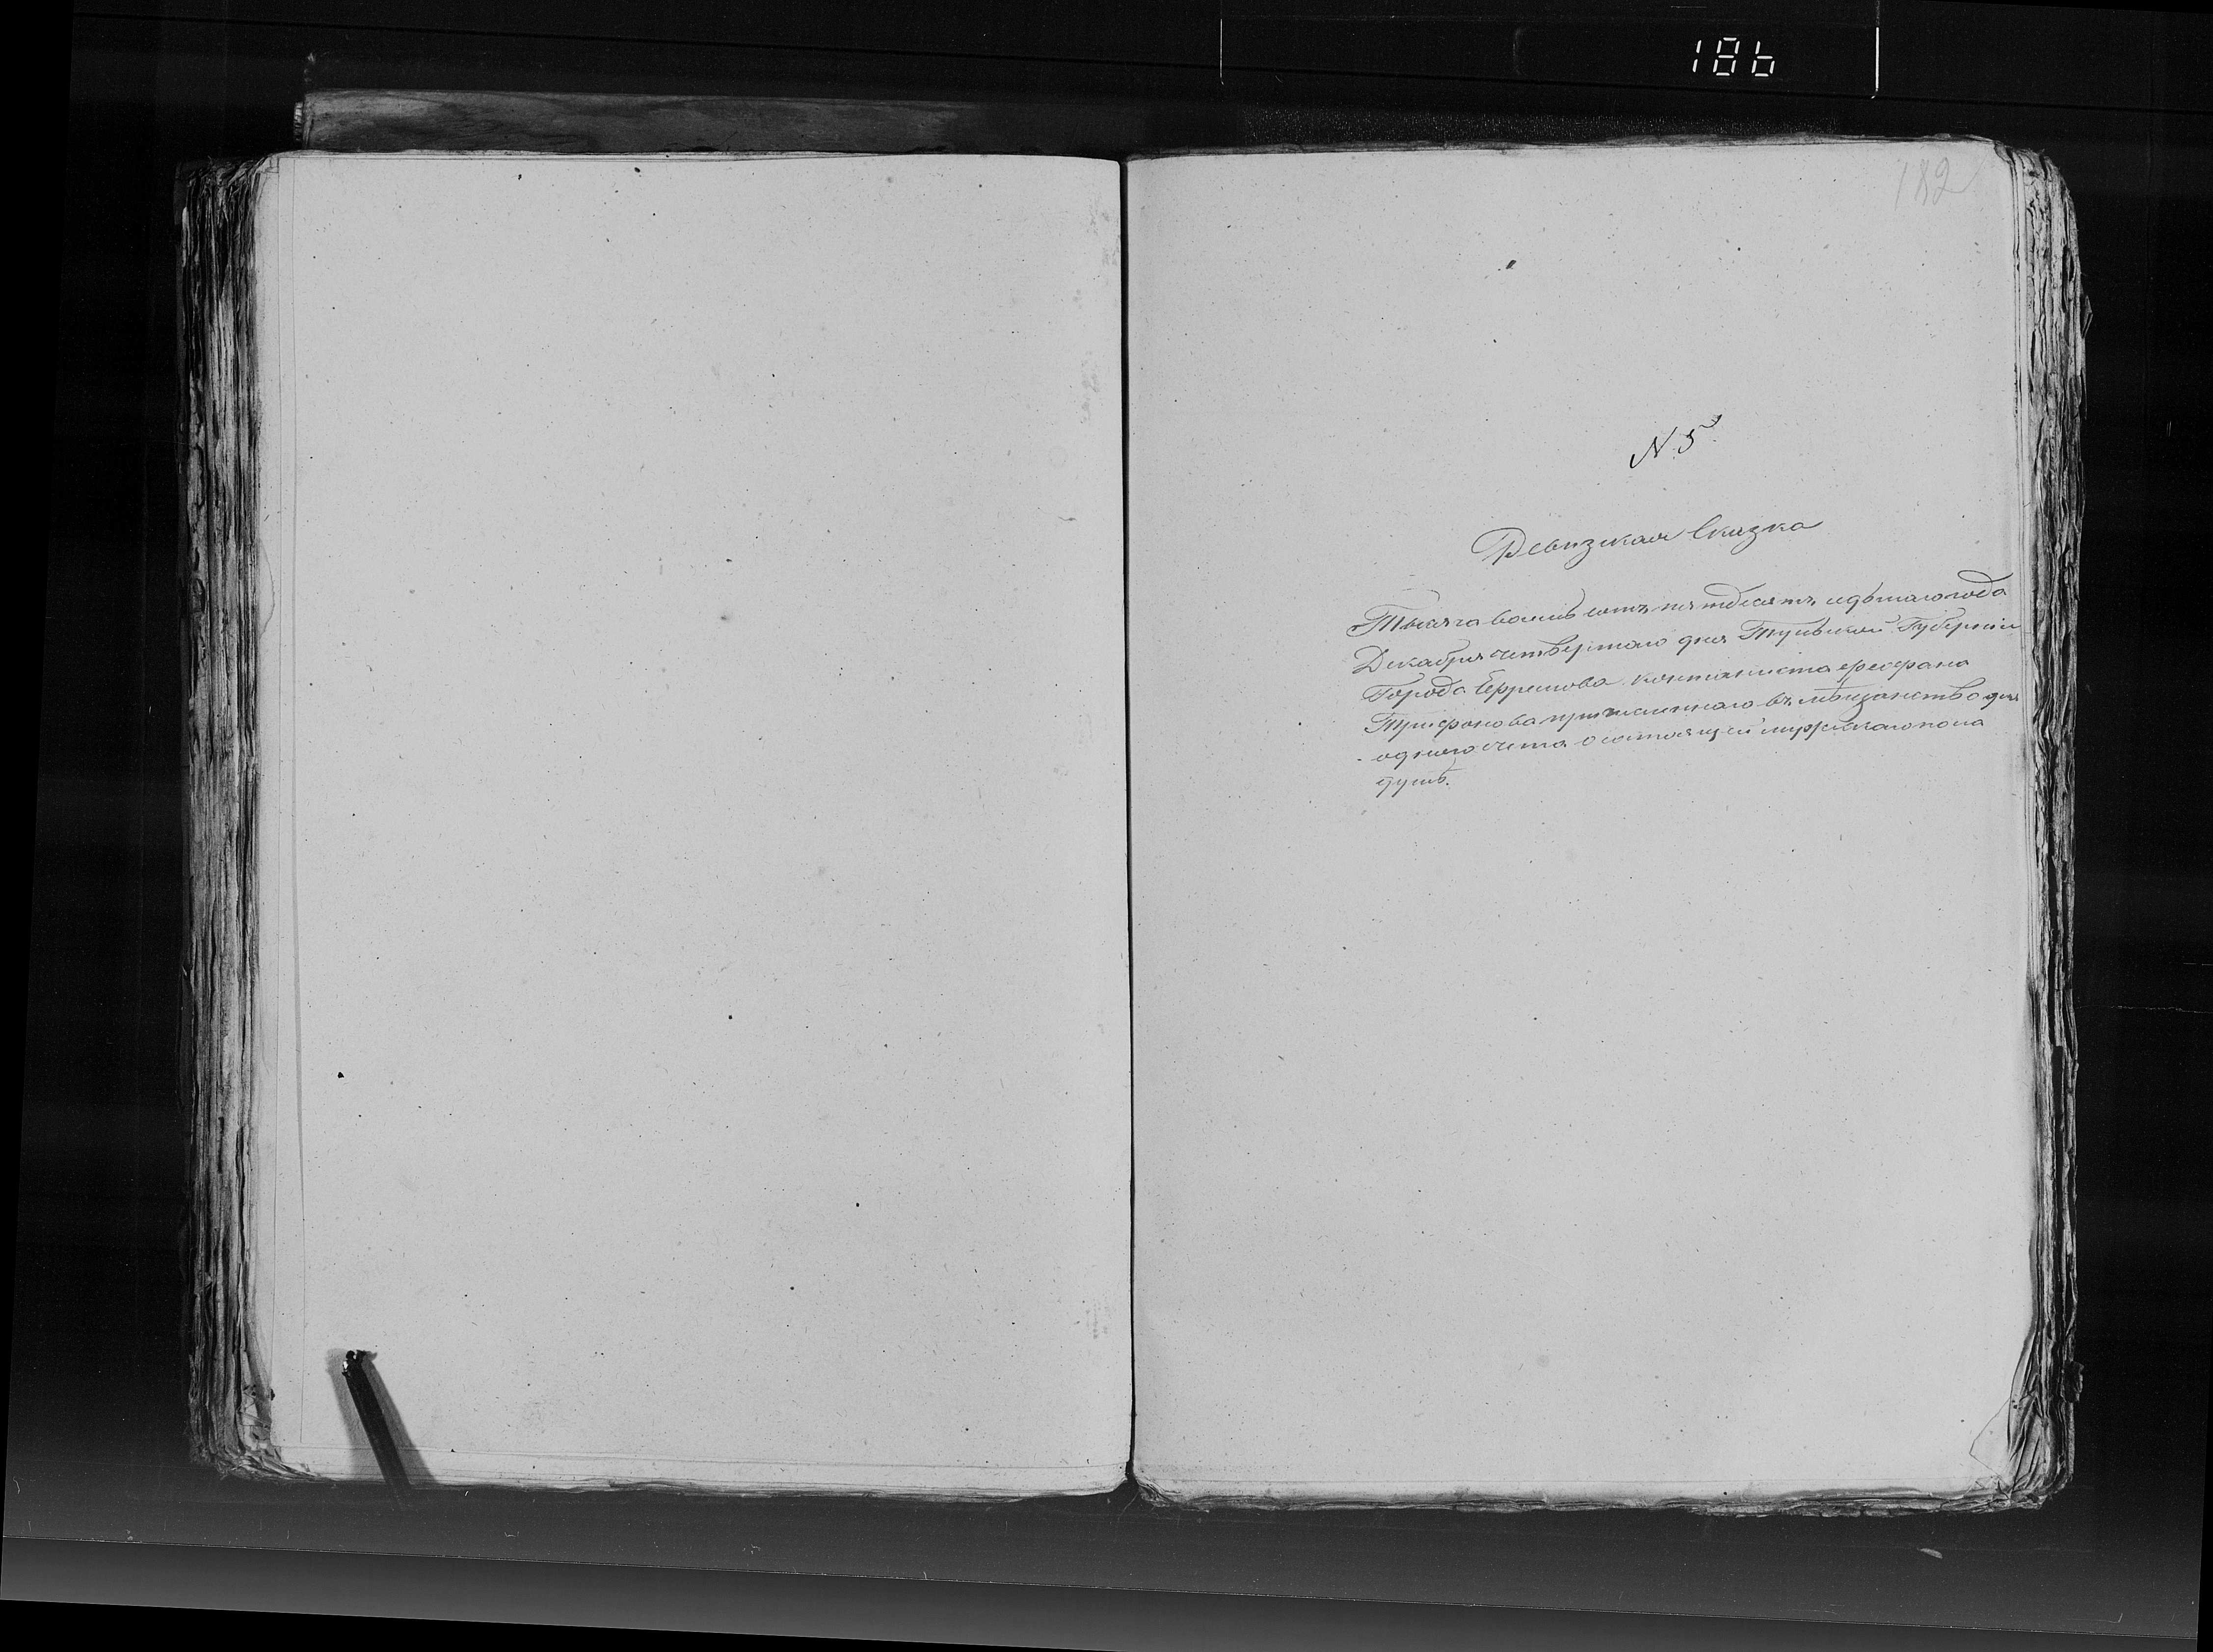 186
182
N. 5.
Ревизская Сказка
Тысяча восемь сотъ пятдесятъ седьмаго года
Декабря четвертаго дня Тульской Губернии
Города Ефремова кантаниста Феофана
Трифонова причисленнаго въ мѣщанство для
одного счета о состоящей мужескаго пола
душѣ.